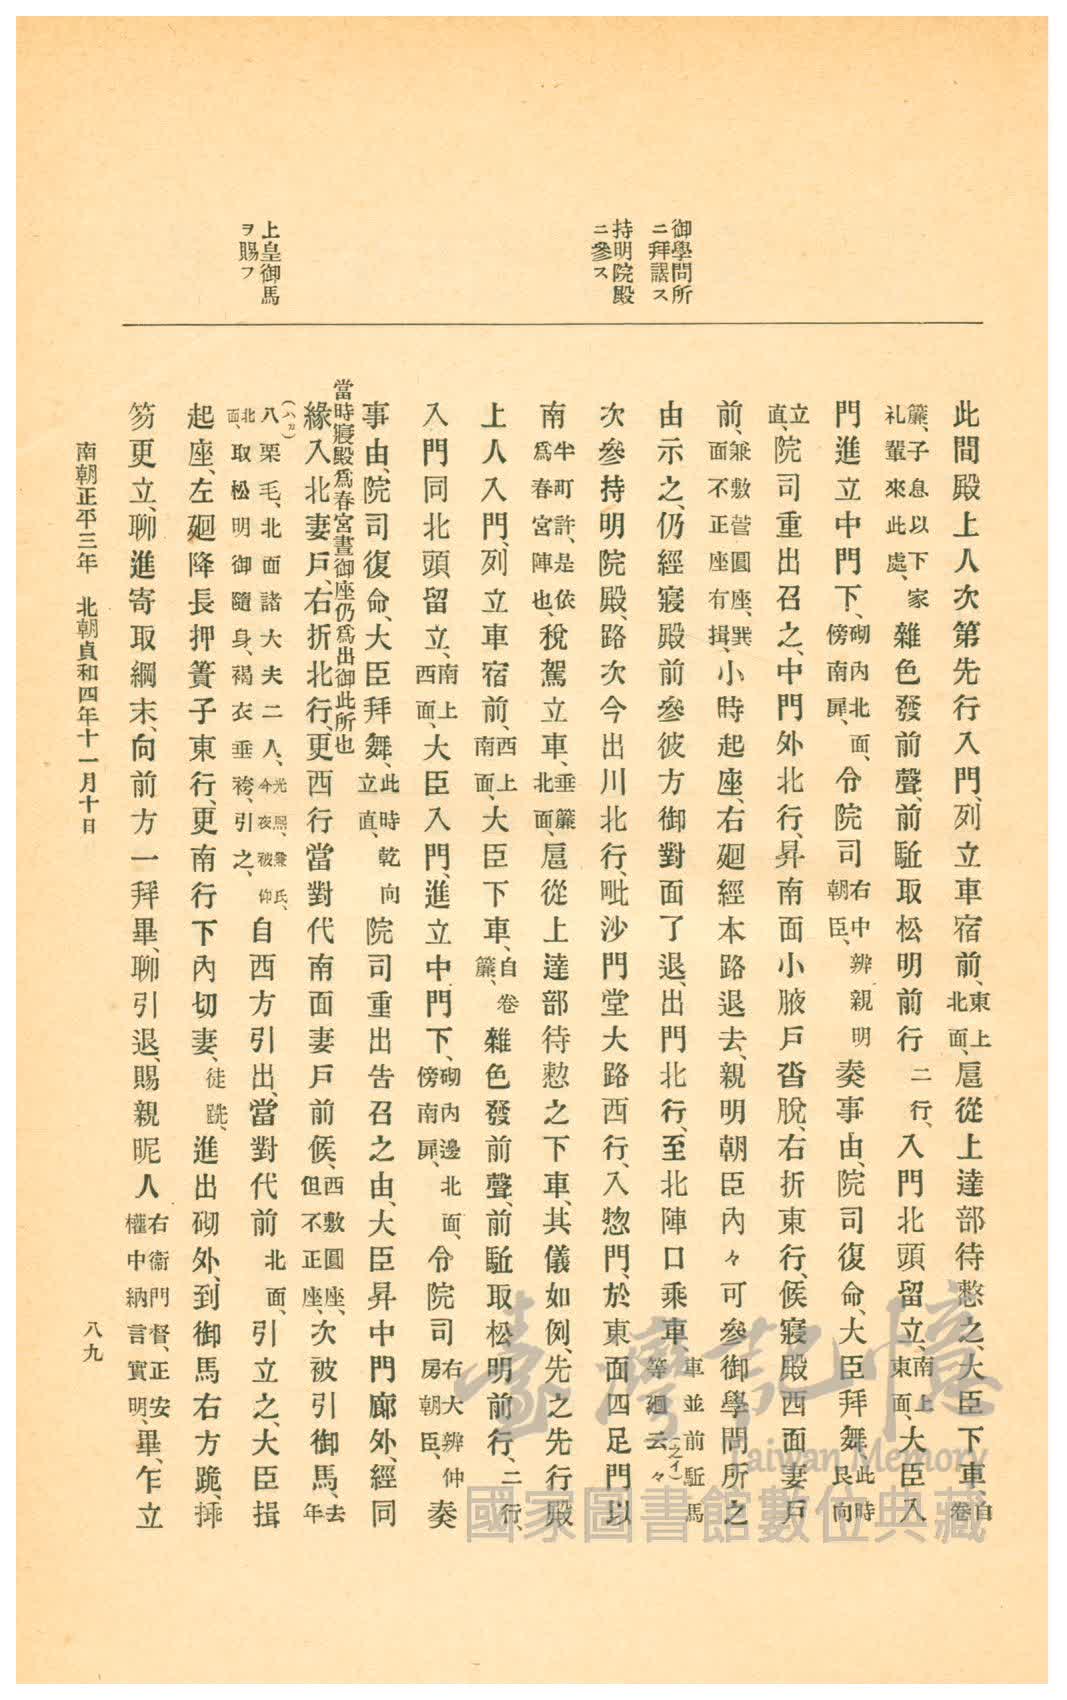 御學問所
ニ拜謁ス
持明院殿
ニ參ス
上皇御馬
ヲ賜フ
此間殿上人次第先行入門、列立車宿前、東上北面、扈從上達部待憗之、大臣下車、自卷
簾、子息以下家礼輩來此處、雜色發前聲、前駈取松明前行二行、入門北頭、留立、南上東面、大臣入
門進立中門下、砌內北面、傍南扉、令院司右中辨親明朝臣、奏事由、院司復命、大臣拜舞此時艮向
立直、院司重出召之、中門外北行、昇南面小腋戶沓脫、右折東行、候寢殿西面妻戶
前、兼敷菅圓座、巽面不正座有揖、小時起座、右廻經本路退去、親明朝臣內々可參御學問所之
由示之、仍經寢殿前參彼方御對面了退、出門北行、至北陣口乘車、車並前駈馬等廻云々(之イ)
次參持明院殿、路次今出川北行、毗沙門堂大路西行、入惣門、於東面四足門以
南半町許、是依爲春宮陣也、稅駕立車、垂簾北面、扈從上達部待憗之下車、其儀如例、先之先行殿
上人入門、列立車宿前、西上南面、大臣下車、自卷簾、雜色發前聲、前駈取松明前行、二行、
入門同北頭、留立、南上西面、大臣入門、進立中門下、砌內邊北面、傍南扉、令院司右大辨仲房朝臣、奏
事由、院司復命、大臣拜舞、此時乾向立直、院司重出告召之由、大臣昇中門廊外、經同
當時寢殿爲春宮晝御座仍爲出御此所也
緣入北妻戶、右折北行、更西行當對代南面妻戶前候、西敷圓座、但不正座、次被引御馬、去年
(ハカ)
八栗毛、北面諸大夫二人、光熙、兼氏、今夜被仰北面、取松明御隨身、褐衣垂袴、引之、自西方引出、當對代前北面、引立之、大臣揖
起座、左廻降長押簀子東行、更南行下內切妻、徒跣、進出砌外、到御馬右方跪、揷
笏更立、聊進寄取綱末、向前方一拜畢、聊引退、賜親昵人右衞門督、正安權中納言實明、畢、乍立
南朝正平三年　北朝貞和四年十一月十日
八九
臺灣記憶
Taiwan Memory
國家圖書館數位典藏